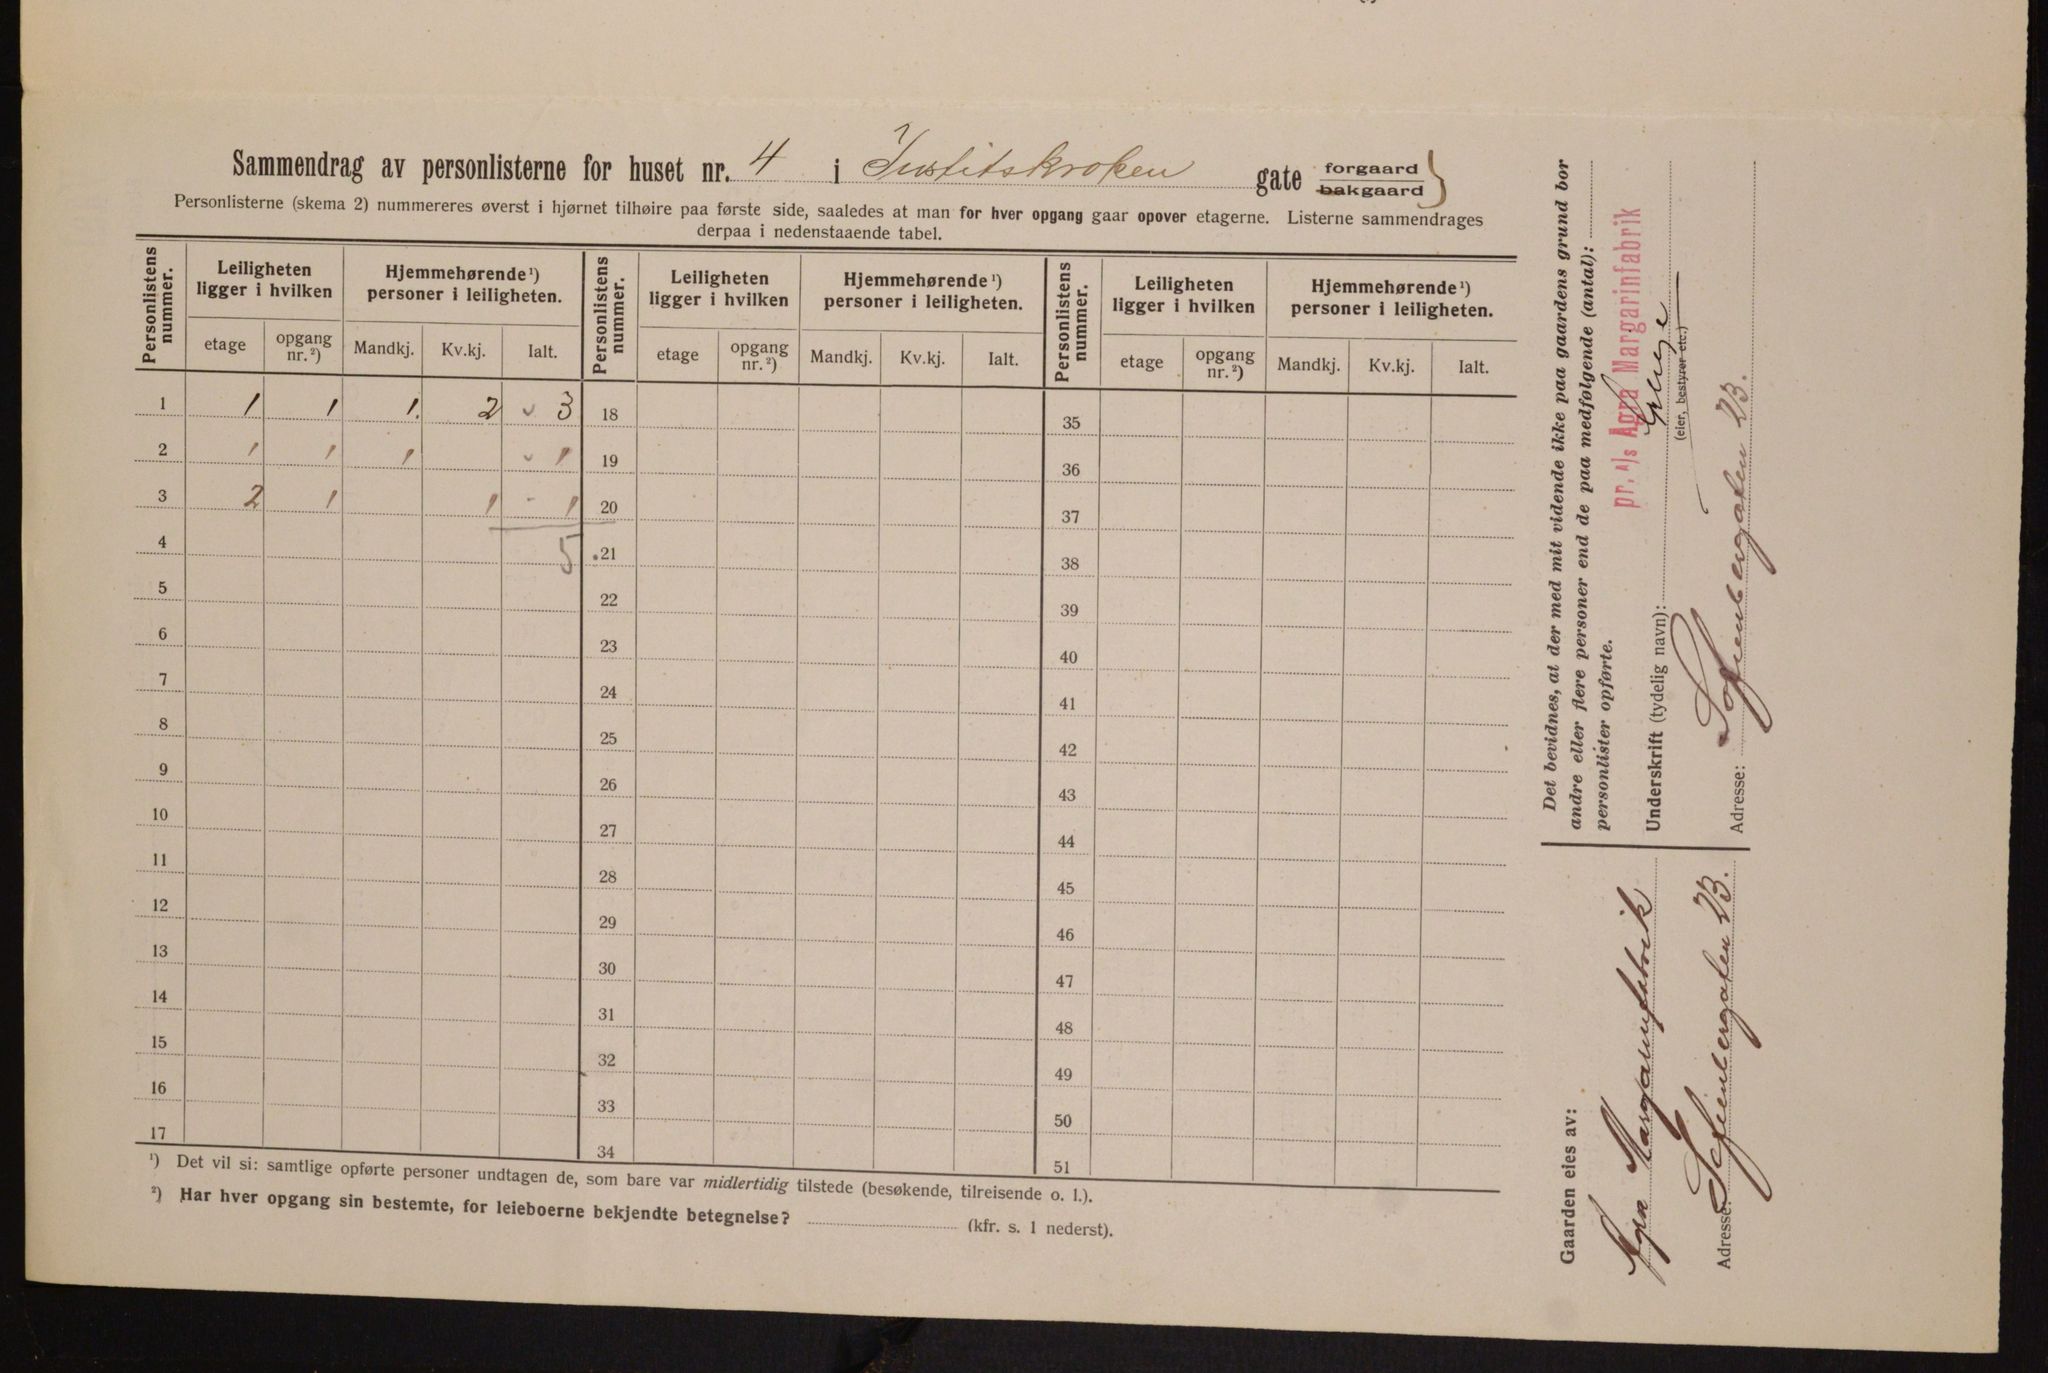 Sammendrag av personlisterne for huset nr. 4 i Institskroken gate forgaard bakgaard }
Personlisterne (skema 2) nummereres øverst i hjørnet tilhøire paa første side, saaledes at man for hver opgang gaar opover etagerne. Listerne sammendrages
derpaa i nedenstaaende tabel.
Personlistens nummer. Leiligheten ligger i hvilken Hjemmehørende¹) personer i leiligheten. Personlistens nummer. Leiligheten ligger i hvilken Hjemmehørende¹) personer i leiligheten. Personlistens nummer. Leiligheten ligger i hvilken Hjemmehørende¹) personer i leiligheten.
etage opgang nr.²) Mandkj. Kv.kj. Ialt. etage opgang nr.²) Mandkj. Kv.kj. Ialt. etage opgang nr.²) Mandkj. Kv.kj. Ialt.
1 1 1 1. 2 v 3 18 35
2 1 1 1 v 1 19 36
3 2 1 1 - 1 20 37
4 5 21 38
5 22 39
6 23 40
7 24 41
8 25 42
9 26 43
10 27 44
11 28 45
12 29 46
13 30 47
14 31 48
15 32 49
16 33 50
17 34 51
¹) Det vil si: samtlige opførte personer undtagen de, som bare var midlertidig tilstede (besøkende, tilreisende o. l.).
²) Har hver opgang sin bestemte, for leieboerne bekjendte betegnelse? (kfr. s. 1 nederst).
Det bevidnes, at der med mit vidende ikke paa gaardens grund bor
andre eller flere personer end de paa medfølgende (antal):
personlister opførte.
pr. A/s Agra Margarinfabrik
Underskrift (tydelig navn):
(eier, bestyrer etc.)
Adresse: Sofienberggaten 2B.
Gaarden eies av:
Agra Margarinfabrik
Adresse: Sofienberggaten 2B.